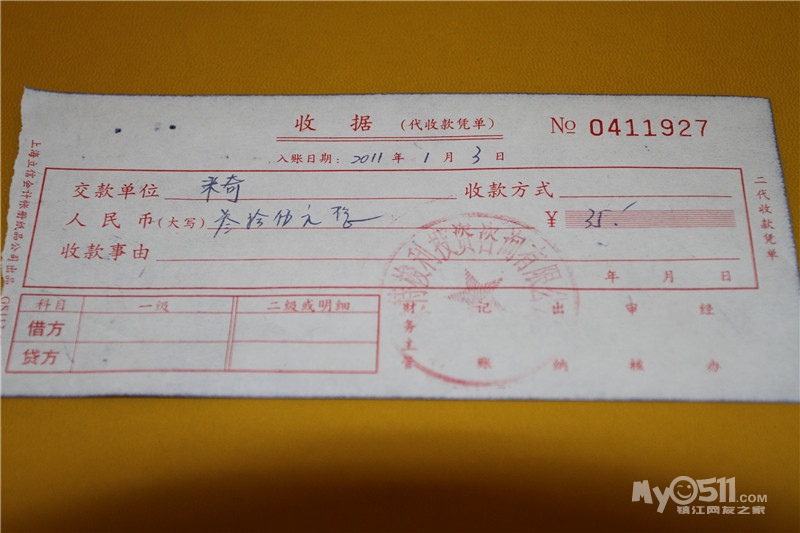 收据 (代收款凭单) № 0411927
入账日期: 2011 年 1 月 3 日
交款单位 米奇 收款方式
人民币(大写) 叁拾伍元整 ¥ 35.
收款事由
年 月 日
科目 一级 二级或明细
借方
贷方
财务主管 记账 出纳 审核 经办
二代收款凭单
上海立信会计帐册纸品公司出品
利投资咨询有限公
My0511.com
镇江网友之家